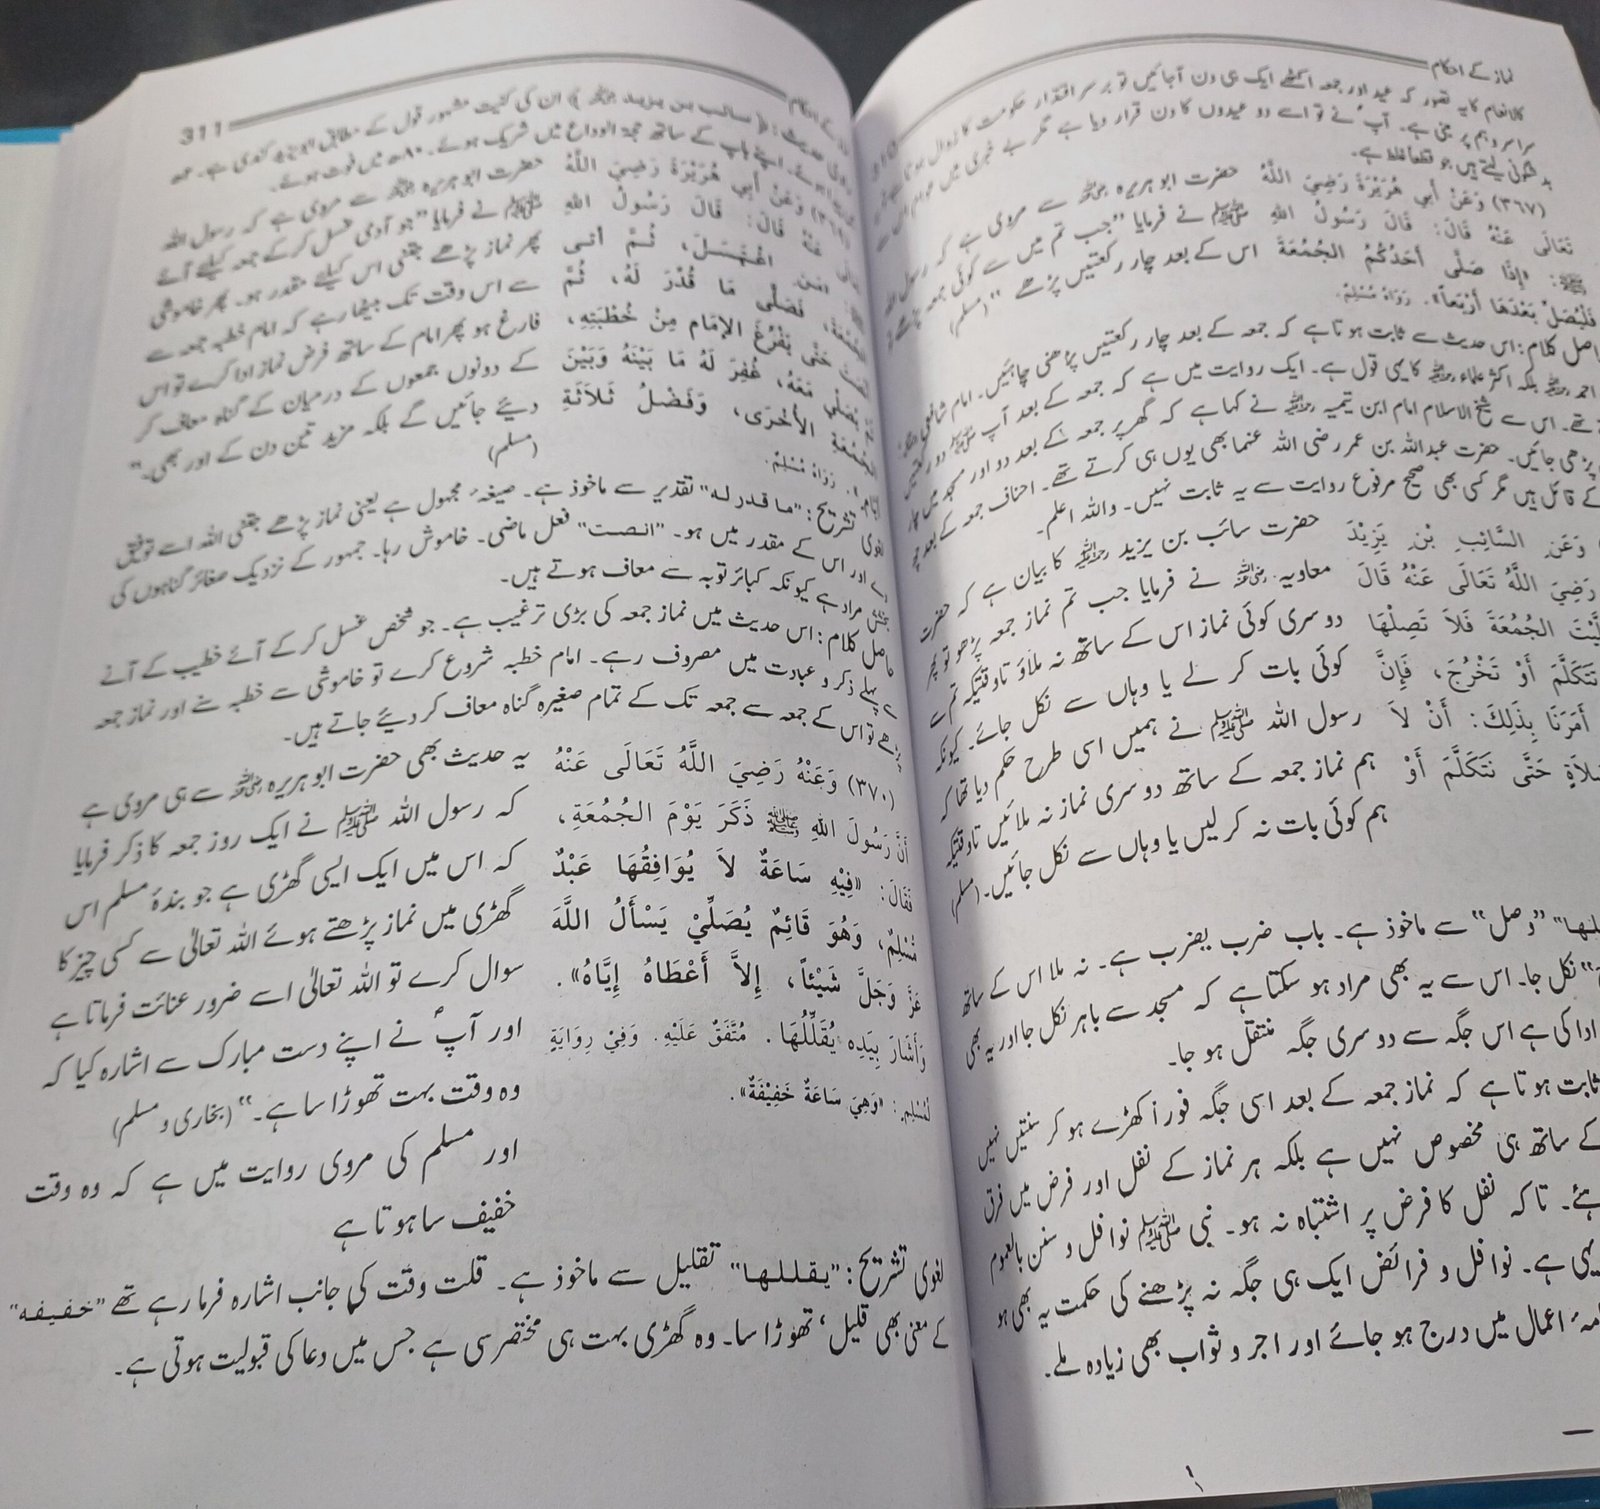 نماز کے احکام
310
کالانعام کا یہ تصور کہ عید اور جمعہ اکٹھے ایک ہی دن آجائیں تو برسر اقتدار حکومت کا زوال ہوتا ہے
سراسر وہم پر مبنی ہے۔ آپؐ نے تو اسے دو عیدوں کا دن قرار دیا ہے مگر بے خبری میں عوام اس سے
بد شگونی لیتے ہیں جو قطعاً غلط ہے۔
(٣٦٧) وَعَنْ أَبِي هُرَيْرَةَ رَضِيَ اللَّهُ
تَعَالَى عَنْهُ قَالَ: قَالَ رَسُولُ اللهِ
ﷺ: «إِذَا صَلَّى أَحَدُكُمُ الجُمُعَةَ
فَلْيُصَلِّ بَعْدَهَا أَرْبَعاً». رَوَاهُ مُسْلِمٌ.
حضرت ابو ہریرہ رضی اللہ عنہ سے مروی ہے کہ رسول اللہ
ﷺ نے فرمایا "جب تم میں سے کوئی جمعہ پڑھے تو
اس کے بعد چار رکعتیں پڑھے" (مسلم)
اصل کلام: اس حدیث سے ثابت ہوتا ہے کہ جمعہ کے بعد چار رکعتیں پڑھنی چاہئیں۔ امام شافعی
احمد بلکہ اکثر علماء کا یہی قول ہے۔ ایک روایت میں ہے کہ جمعہ کے بعد آپ ﷺ دو رکعتیں
تھے۔ اس سے شیخ الاسلام امام ابن تیمیہ نے کہا ہے کہ گھر پر جمعہ کے بعد دو اور مسجد میں چار
پڑھی جائیں۔ حضرت عبداللہ بن عمر رضی اللہ عنما بھی یوں ہی کرتے تھے۔ احناف جمعہ کے بعد چھ
کے قائل ہیں مگر کسی بھی صحیح مرفوع روایت سے یہ ثابت نہیں۔ واللہ اعلم۔
وَعَنِ السَّائِبِ بْنِ يَزِيْدَ
رَضِيَ اللَّهُ تَعَالَى عَنْهُ قَالَ
الجُمُعَةَ فَلَا تَصِلْهَا
تَتَكَلَّمَ أَوْ تَخْرُجَ، فَإِنَّ
أَمَرَنَا بِذَلِكَ: أَنْ لاَ
حَتَّى نَتَكَلَّمَ أَوْ
حضرت سائب بن یزید کا بیان ہے کہ حضرت
معاویہ نے فرمایا جب تم نماز جمعہ پڑھو تو پھر
دوسری کوئی نماز اس کے ساتھ نہ ملاؤ تاوقتیکہ تم سے
کوئی بات کر لے یا وہاں سے نکل جائے۔ کیونکہ
رسول اللہ ﷺ نے ہمیں اسی طرح حکم دیا تھا کہ
ہم نماز جمعہ کے ساتھ دوسری نماز نہ ملائیں تاوقتیکہ
ہم کوئی بات نہ کر لیں یا وہاں سے نکل جائیں۔ (مسلم)
"وصل" سے ماخوذ ہے۔ باب ضرب یضرب ہے۔ نہ ملا اس کے ساتھ
نکل جا۔ اس سے یہ بھی مراد ہو سکتا ہے کہ مسجد سے باہر نکل جا اور یہ بھی
ادا کی ہے اس جگہ سے دوسری جگہ منتقل ہو جا۔
ثابت ہوتا ہے کہ نماز جمعہ کے بعد اسی جگہ فوراً کھڑے ہو کر سنتیں نہیں
کے ساتھ ہی مخصوص نہیں ہے بلکہ ہر نماز کے نفل اور فرض میں فرق
تاکہ نفل کا فرض پر اشتباہ نہ ہو۔ نبی ﷺ نوافل و سنن بالعموم
یہی ہے۔ نوافل و فرائض ایک ہی جگہ نہ پڑھنے کی حکمت یہ بھی ہو
اعمال میں درج ہو جائے اور اجر و ثواب بھی زیادہ ملے۔
نماز کے احکام
311
راوی حدیث: (سائب بن یزید) ان کی کنیت مشہور قول کے مطابق ابو یزید کندی ہے۔
اپنے باپ کے ساتھ حجۃ الوداع میں شریک ہوئے۔ ٨٠ھ میں فوت ہوئے۔
وَعَنْ أَبِي هُرَيْرَةَ رَضِيَ اللَّهُ
عَنْهُ قَالَ: قَالَ رَسُولُ اللهِ
«مَنِ اغْتَسَلَ، ثُمَّ أَتَى
الجُمُعَةَ، فَصَلَّى مَا قُدِّرَ لَهُ، ثُمَّ
أَنْصَتَ حَتَّى يَفْرُغَ الإِمَامُ مِنْ خُطْبَتِهِ،
ثُمَّ يُصَلِّي مَعَهُ، غُفِرَ لَهُ مَا بَيْنَهُ وَبَيْنَ
الجُمُعَةِ الأُخْرَى، وَفَضْلُ ثَلَاثَةِ
أَيَّامٍ». رَوَاهُ مُسْلِمٌ.
حضرت ابو ہریرہ سے مروی ہے کہ رسول اللہ
ﷺ نے فرمایا "جو آدمی غسل کر کے جمعہ کیلئے آئے
پھر نماز پڑھے جتنی اس کیلئے مقدر ہو۔ پھر خاموشی
سے اس وقت تک بیٹھا رہے کہ امام خطبہ جمعہ سے
فارغ ہو پھر امام کے ساتھ فرض نماز ادا کرے تو اس
کے دونوں جمعوں کے درمیان کے گناہ معاف کر
دیئے جائیں گے بلکہ مزید تین دن کے اور بھی۔"
(مسلم)
لغوی تشریح: "ما قدر له" تقدیر سے ماخوذ ہے۔ صیغۂ مجہول ہے یعنی نماز پڑھے جتنی اللہ اسے توفیق
دے اور اس کے مقدر میں ہو۔ "انصت" فعل ماضی۔ خاموش رہا۔ جمہور کے نزدیک صغائر گناہوں کی
بخشش مراد ہے کیونکہ کبائر توبہ سے معاف ہوتے ہیں۔
حاصل کلام: اس حدیث میں نماز جمعہ کی بڑی ترغیب ہے۔ جو شخص غسل کر کے آئے خطیب کے آنے
سے پہلے ذکر و عبادت میں مصروف رہے۔ امام خطبہ شروع کرے تو خاموشی سے خطبہ سنے اور نماز جمعہ
پڑھے تو اس کے جمعہ سے جمعہ تک کے تمام صغیرہ گناہ معاف کر دیئے جاتے ہیں۔
(٣٧٠) وَعَنْهُ رَضِيَ اللَّهُ تَعَالَى عَنْهُ
أَنَّ رَسُولَ اللهِ ﷺ ذَكَرَ يَوْمَ الجُمُعَةِ،
فَقَالَ: «فِيْهِ سَاعَةٌ لاَ يُوَافِقُهَا عَبْدٌ
مُسْلِمٌ، وَهُوَ قَائِمٌ يُصَلِّيْ يَسْأَلُ اللَّهَ
عَزَّ وَجَلَّ شَيْئاً، إِلاَّ أَعْطَاهُ إِيَّاهُ».
وَأَشَارَ بِيَدِهِ يُقَلِّلُهَا. مُتَّفَقٌ عَلَيْهِ. وَفِيْ رِوَايَةٍ
لِمُسْلِمٍ: «وَهِيَ سَاعَةٌ خَفِيْفَةٌ».
یہ حدیث بھی حضرت ابو ہریرہ سے ہی مروی ہے
کہ رسول اللہ ﷺ نے ایک روز جمعہ کا ذکر فرمایا
کہ اس میں ایک ایسی گھڑی ہے جو بندۂ مسلم اس
گھڑی میں نماز پڑھتے ہوئے اللہ تعالیٰ سے کسی چیز کا
سوال کرے تو اللہ تعالیٰ اسے ضرور عنائت فرماتا ہے
اور آپؐ نے اپنے دست مبارک سے اشارہ کیا کہ
وہ وقت بہت تھوڑا سا ہے۔" (بخاری و مسلم)
اور مسلم کی مروی روایت میں ہے کہ وہ وقت
خفیف سا ہوتا ہے
لغوی تشریح: "یقللها" تقلیل سے ماخوذ ہے۔ قلت وقت کی جانب اشارہ فرما رہے تھے "خفیفه"
کے معنی بھی قلیل، تھوڑا سا۔ وہ گھڑی بہت ہی مختصر سی ہے جس میں دعا کی قبولیت ہوتی ہے۔